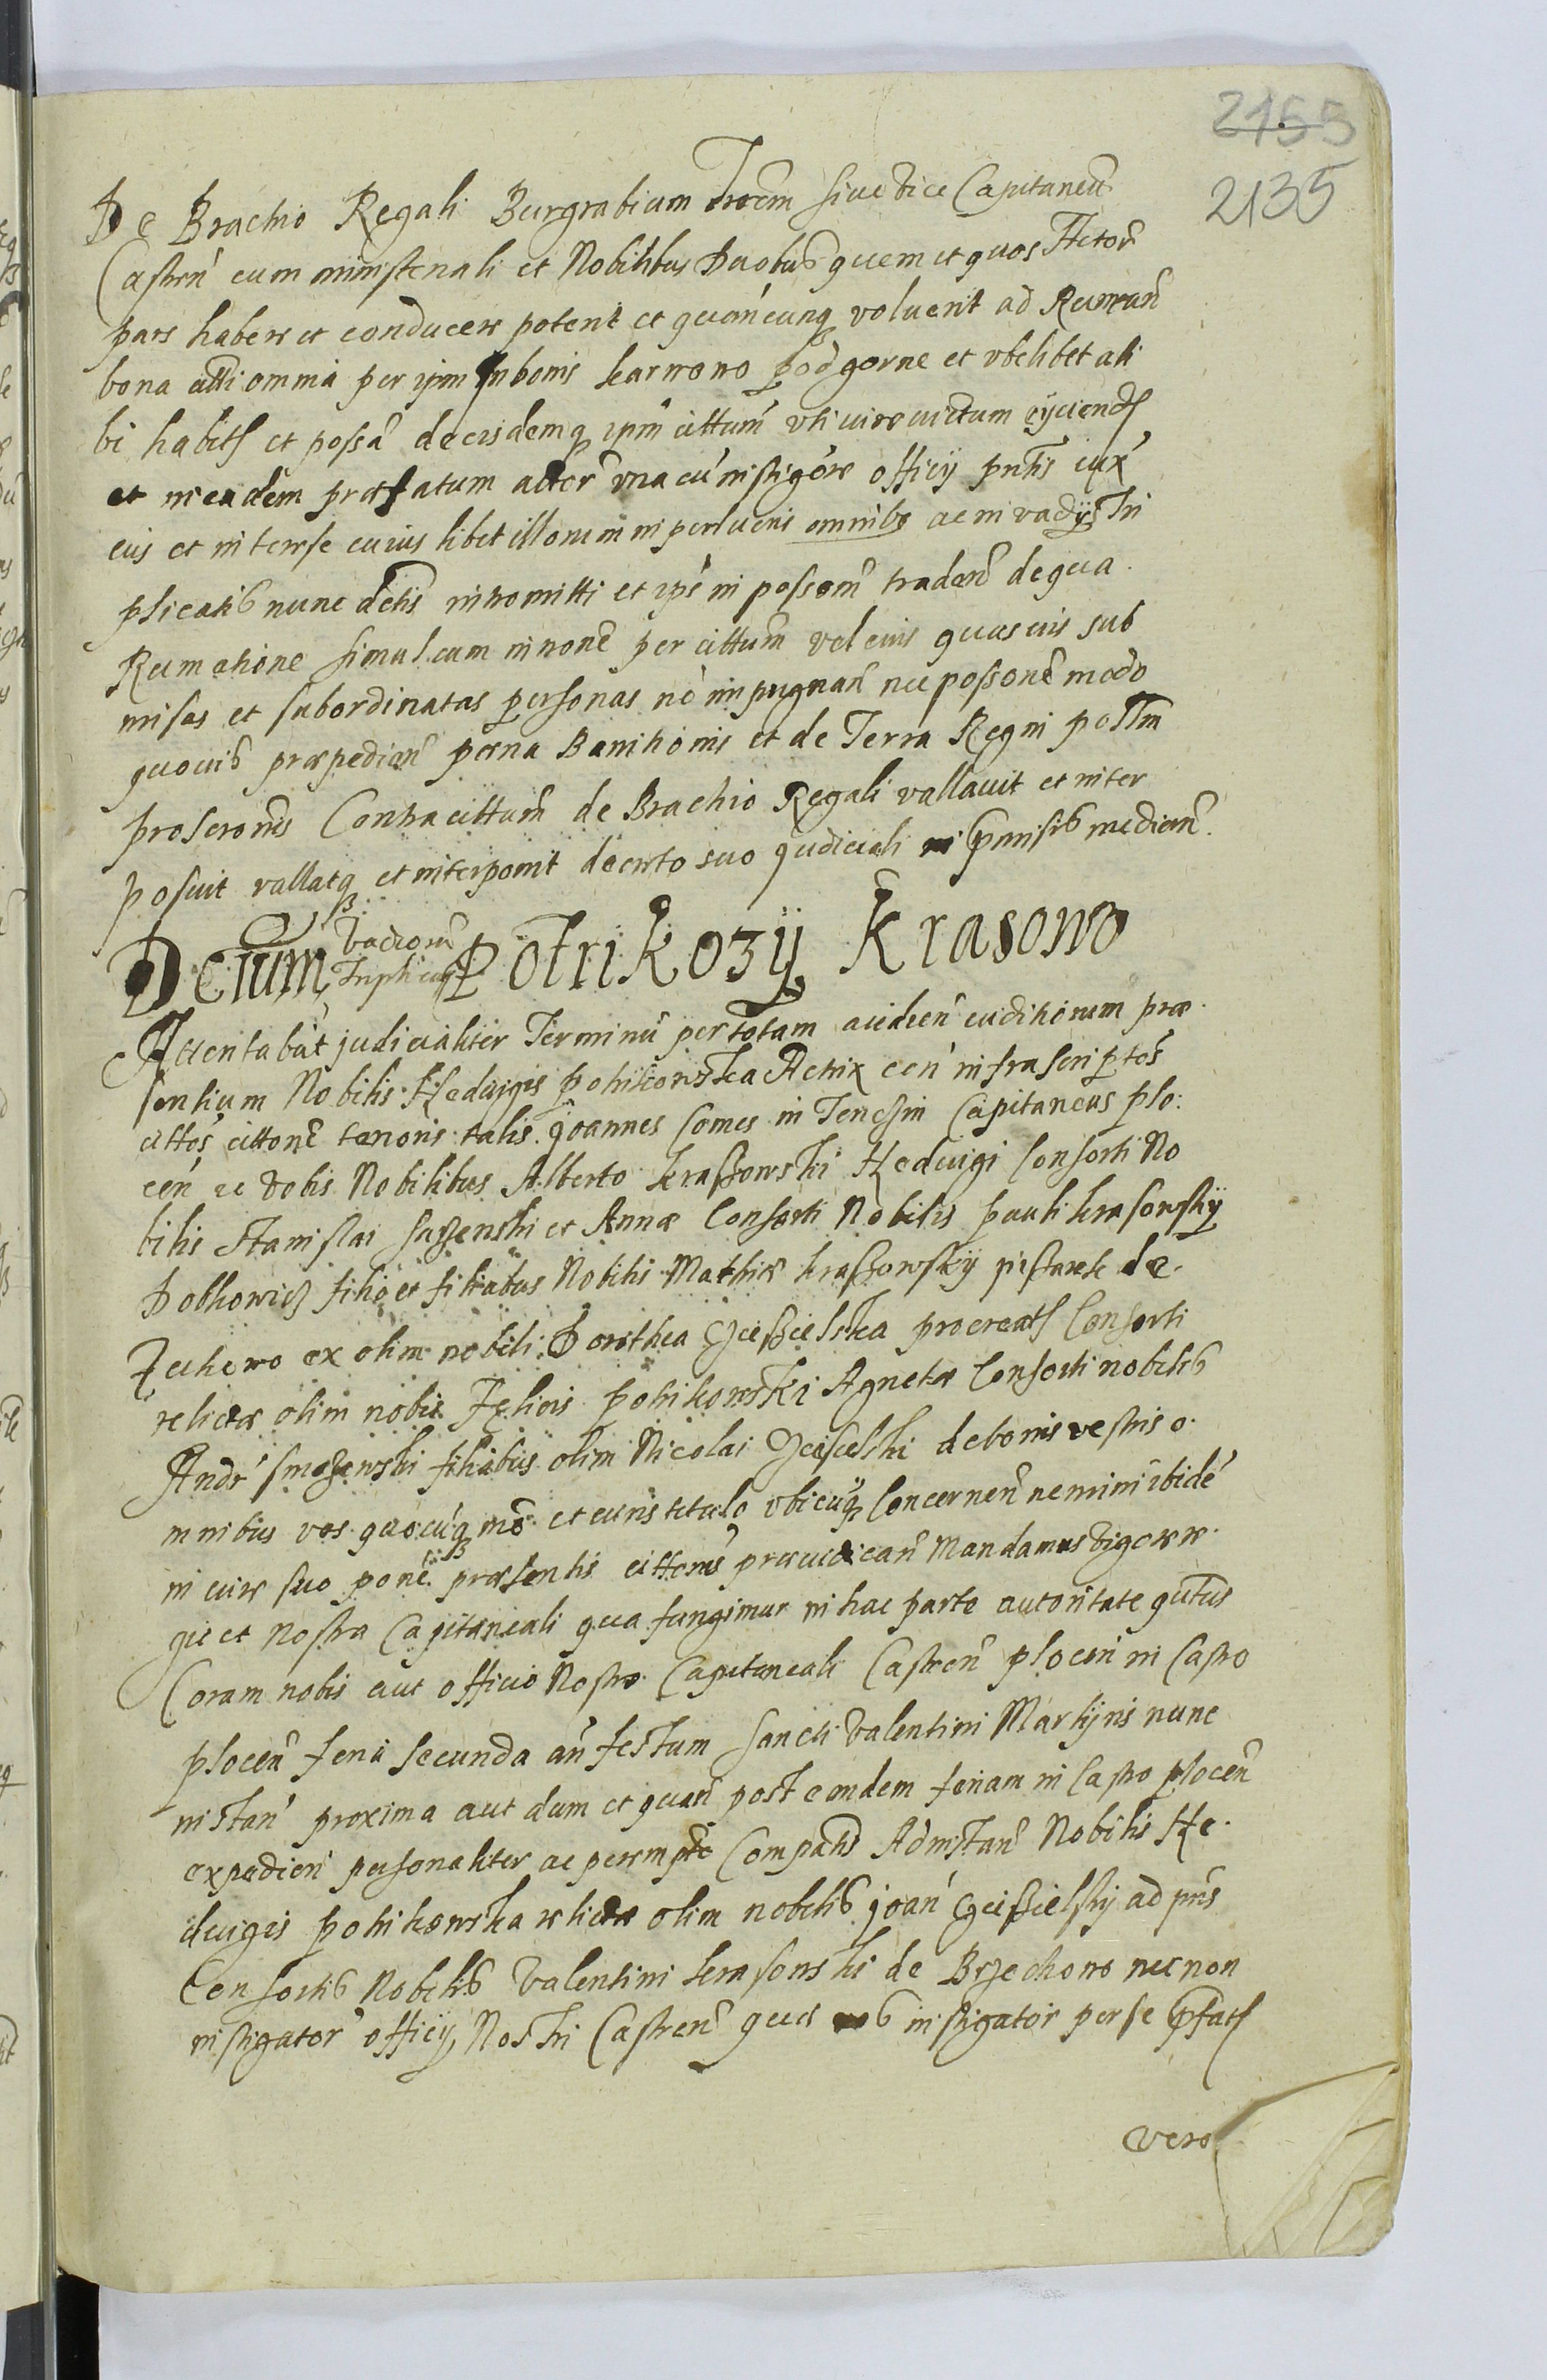 2155
2135
De Brachio Regali Burgrabium Irocm̃ siue Vice Capitaneũ
Castreñ cum ministeriali et Nobilibus Duobus quem et quos Actor̃
pars habere et conducere poterit et quañcunq voluerit ad Rumañ
bona atti omnia per ipm in bonis karwowo podgorne et vbilibet ali
bi habits et possã de eisdemq ipm cittum̃ vti iure victum eijciends
et in eadem præfatum actor̃ vna cũ instigõre officij pñtis iux̃
eis et interesse cuius libet illorum in perlucris omnibs ac in vadijs Tri
plicatis nunc detis intromitti et ips̃ in possom̃ tradeñ de qua
Rumatione simul cum in none per cittum̃ vel eius quasuis sub
misas et subordinatas personas nõ impugnañ nec possonẽ modo
quouis præpedieñ pæna Banitionis et de Terra Regni postm̃
proscronis Contra cittum̃ de Brachio Regali vallauit et inter
posuit vallatq et interponit decreto suo judiciali in præmisis medieñ
Detum Vadiorũ Triplicats Potrikozÿ Krasowo
Attentabat judicialiter Terminũ per totam audieñ cuditiorum præ
sentium Nobilis Heduigis pohikowska Actrix coñ infrascriptos
cittos cittonẽ tenoris talis Joannes Comes in Tenczin Capitaneus plo:
ceñ ec vobis Nobilibus Alberto kraßowski Heduigi Consorti No
bilis Stanislai suzenski et Annæ Consorti Nobilis pauli krasowskÿ
Dobkowicz filio et filiabus Nobilis Mathiæ kraßowskÿ pißarek de
Zuchowo ex olim nobili Dorothea Gceßielska procreats Consorti
relictæ olim nobis Felicis pohikowski Agnetæ Consorti nobilis
Andr̃ smoszewski filiabus olim Nicolai Gceiselski de bonis vestris o
mnibus vos quocũq mõ et cuius titulo vbicũq Concerneñ nemini ibidẽ
in iure suo ponẽ præsentis cittonis præiudicañ Mandamus Vigore re
gie et nostra Capitaneali qua fungimur in hac parte autoritate q̃tus
Coram nobis aut officio Nostro Capitaneali Castreñ ploceñ in Castro
ploceñ feria secunda añ festum Sancti Valentini Martijris nunc
instañ proxima aut dum et quañ post eandem feriam in Castro ploceñ
expedieñ personaliter ac peremptẽ Compatis Ad instañ Nobilis He
duigis pohikowska relictæ olim nobilis joañ Gceißielskij ad pñs
Consortis Nobilis Valentini krasowski de Brzechowo necnon
instigator̃ officij Nostri Castreñ quia vos instigator per se præfats
vero